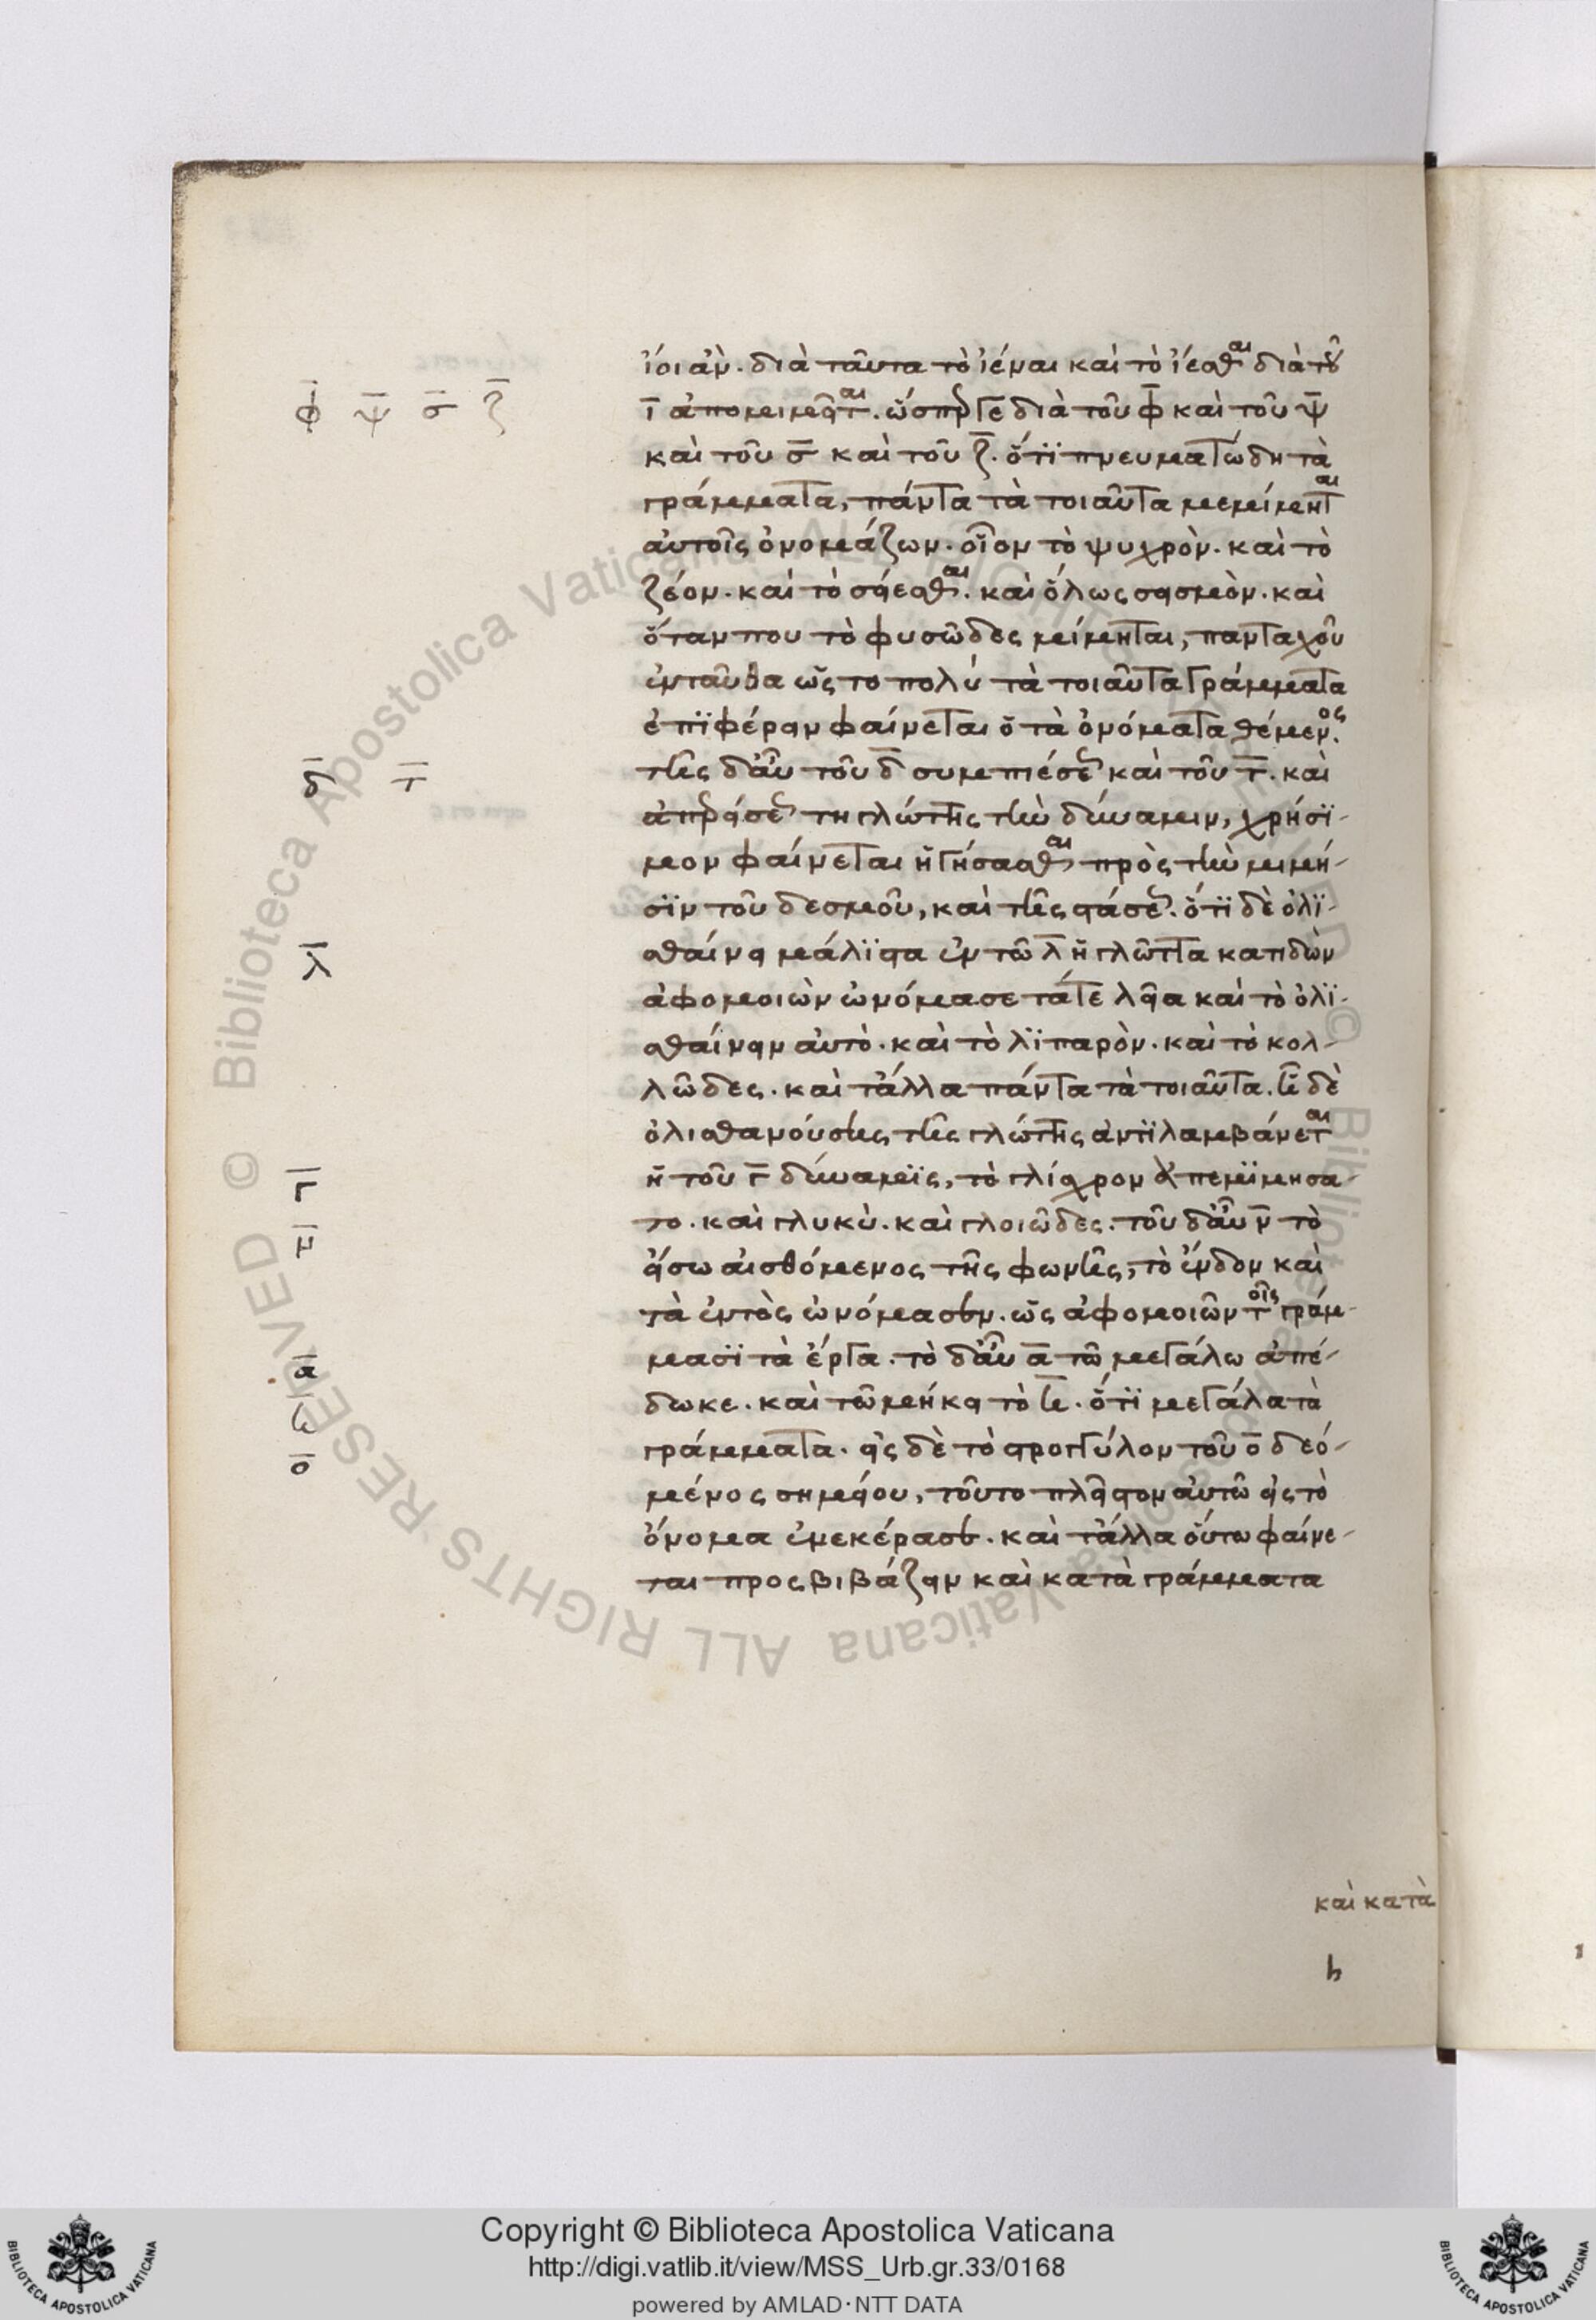 ἴοι ἀν. διὰ ταῦτα τὸ ἰέναι καὶ τὸ ἵεσθαι διὰ τοῦ
φ̄ ψ̄ σ̄ ζ̄
ῑ ἀπομιμεῖται. ὥσπερ γε διὰ τοῦ φ̄ καὶ τοῦ ψ̄
καὶ τοῦ σ̄ καὶ τοῦ ζ̄. ὅτι πνευματώδη τὰ
γράμματα, πάντα τὰ τοιαῦτα μεμίμηται
αὐτοῖς ὀνομάζων. οἷον τὸ ψυχρὸν. καὶ τὸ
ζέον. καὶ τὸ σείεσθαι. καὶ ὅλως σεισμὸν. καὶ
ὅταν που τὸ φυσῶδες μιμῆται, πανταχοῦ
ἐνταῦθα ὡς το πολὺ τὰ τοιαῦτα γράμματα
ἐπιφέρειν φαίνεται ὁ τὰ ὀνόματα θέμενος.
δ̄ τ̄
τῆς δ᾽ αὖ τοῦ δ̄ συμπιέσεως καὶ τοῦ τ̄. καὶ
ἀπερείσεως τη γλώττης τὴν δύναμιν, χρήσι-
μον φαίνεται ἡγήσασθαι πρὸς τὴν μιμη-
σιν τοῦ δεσμοῦ, καὶ τῆς στάσεως. ὅτι δὲ ὀλι-
λ̄
σθαίνει μάλιστα ἐν τῶ λ̄ ἡ γλῶττα κατιδὼν
ἀφομοιῶν ὠνόμασε τά τε λεῖα καὶ τὸ ὀλι-
σθαίνειν αὐτὸ. καὶ τὸ λιπαρὸν. καὶ τὸ κολ-
λῶδες. καὶ τἆλλα πάντα τὰ τοιαῦτα. ἧ δὲ
ὀλισθανούσης τῆς γλώττης ἀντιλαμβάνεται
γ̄
ἡ τοῦ γ̄ δύναμις, τὸ γλίσχρον ἀπεμιμησα-
το. καὶ γλυκὺ. καὶ γλοιῶδες. τοῦ δ᾽ αὖ ν̄ τὸ
ν̄
εἴσω αἰσθόμενος τῆς φωνῆς, τὸ ἔνδον καὶ
τὰ ἐντὸς ὠνόμασεν. ὡς ἀφομοιῶν τοῖς γράμ-
ᾱ
μασι τὰ ἔργα. τὸ δ᾽ αὖ ᾱ τῶ μεγάλω ἀπέ-
δωκε. καὶ τῶ μήκει τὸ η̄. ὅτι μεγάλα τὰ
η̄
ο̄
γράμματα. εἰς δὲ τὸ στρογγύλον τοῦ ο̄ δεό-
μενος σημείου, τοῦτο πλεῖστον αὐτῶ εἰς τὸ
ὄνομα ἐνεκέρασεν. καὶ τἆλλα οὕτω φαίνε-
ται προςβιβάζειν καὶ κατὰ γράμματα
καὶ κατὰ
h
Copyright © Biblioteca Apostolica Vaticana
http://digi.vatlib.it/view/MSS_Urb.gr.33/0168
powered by AMLAD·NTT DATA
© Biblioteca Apostolica Vaticana ALL RIGHTS RESERVED
BIBLIOTECA APOSTOLICA VATICANA
BIBLIOTECA APOSTOLICA VATICANA